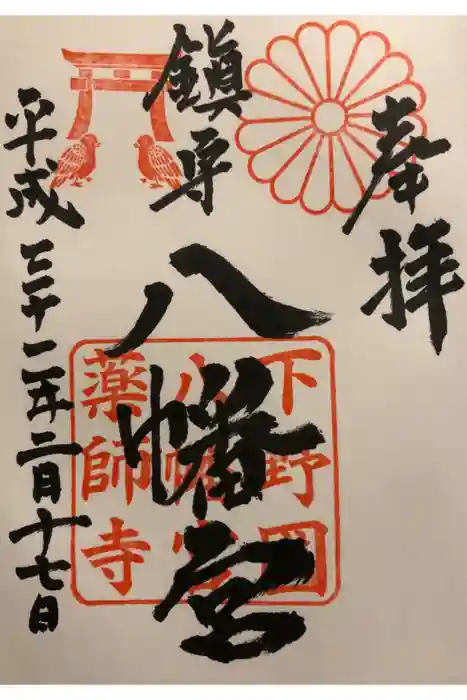 奉拝
鎮守
八幡宮
平成三十二年二月十七日
下野國
八幡宮
薬師寺